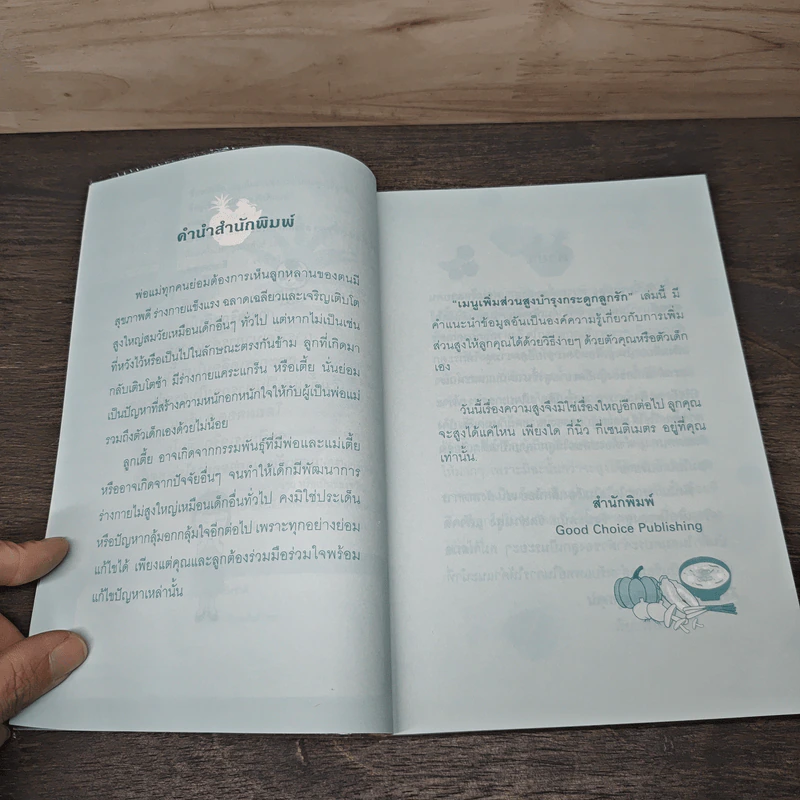 คำนำสำนักพิมพ์
พ่อแม่ทุกคนย่อมต้องการเห็นลูกหลานของตนมี
สุขภาพดี ร่างกายแข็งแรง ฉลาดเฉลียวและเจริญเติบโต
สูงใหญ่สมวัยเหมือนเด็กอื่นๆ ทั่วไป แต่หากไม่เป็นเช่น
ที่หวังไว้หรือเป็นไปในลักษณะตรงกันข้าม ลูกที่เกิดมา
กลับเติบโตช้า มีร่างกายแคระแกร็น หรือเตี้ย นั่นย่อม
เป็นปัญหาที่สร้างความหนักอกหนักใจให้กับผู้เป็นพ่อแม่
รวมถึงตัวเด็กเองด้วยไม่น้อย
ลูกเตี้ย อาจเกิดจากกรรมพันธุ์ที่มีพ่อและแม่เตี้ย
หรืออาจเกิดจากปัจจัยอื่นๆ จนทำให้เด็กมีพัฒนาการ
ร่างกายไม่สูงใหญ่เหมือนเด็กอื่นทั่วไป คงมิใช่ประเด็น
หรือปัญหากลุ้มอกกลุ้มใจอีกต่อไป เพราะทุกอย่างย่อม
แก้ไขได้ เพียงแต่คุณและลูกต้องร่วมมือร่วมใจพร้อม
แก้ไขปัญหาเหล่านั้น
"เมนูเพิ่มส่วนสูงบำรุงกระดูกลูกรัก" เล่มนี้ มี
คำแนะนำข้อมูลอันเป็นองค์ความรู้เกี่ยวกับการเพิ่ม
ส่วนสูงให้ลูกคุณได้ด้วยวิธีง่ายๆ ด้วยตัวคุณหรือตัวเด็ก
เอง
วันนี้เรื่องความสูงจึงมิใช่เรื่องใหญ่อีกต่อไป ลูกคุณ
จะสูงได้แค่ไหน เพียงใด กี่นิ้ว กี่เซนติเมตร อยู่ที่คุณ
เท่านั้น
สำนักพิมพ์
Good Choice Publishing